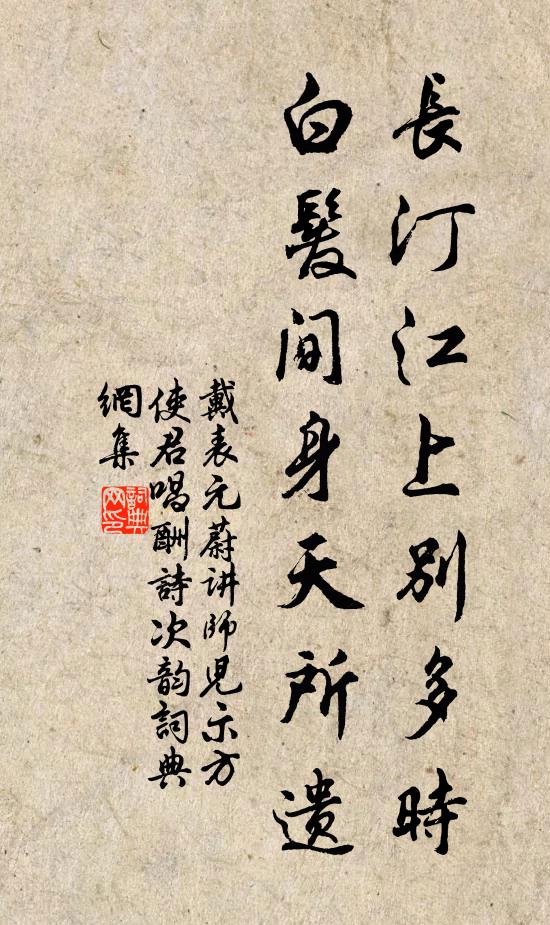 長汀江上別多時
白髮間身天所遺
戴表元蔚讲師見示方
使君唱酬詩次韵詞典
網集
詞典
网印